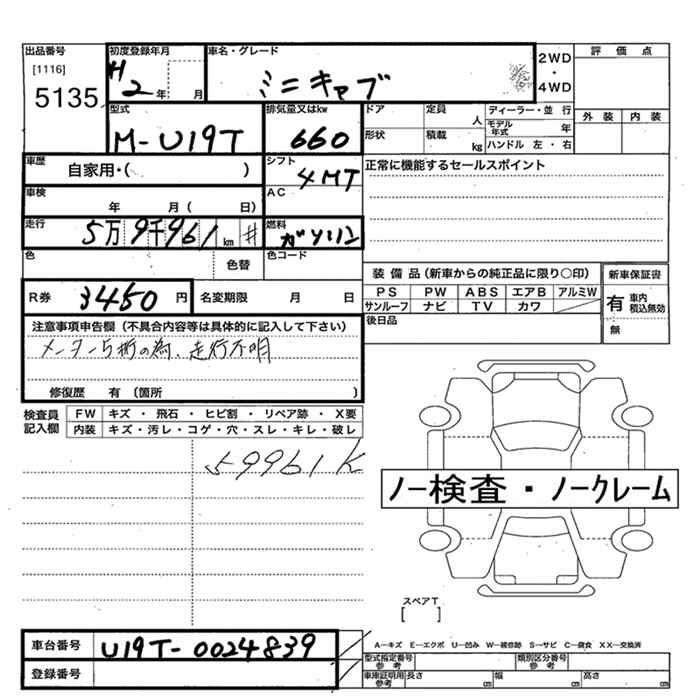 出品番号
[1116]
5135
初度登録年月
H2年 月
車名・グレード
ミニキャブ
2WD
・
4WD
評価点
外装 内装
型式
M-U19T
排気量又はkw
660
ドア
定員
人
ディーラー・並行
モデル年式 年
形状
積載
kg
ハンドル 左・右
車歴
自家用・( )
シフト
4MT
正常に機能するセールスポイント
車検
年 月( 日)
AC
走行
5万9千961km #
燃料
ガソリン
色
色替
色コード
装備品(新車からの純正品に限り〇印)
PS PW ABS エアB アルミW
サンルーフ ナビ TV カワ
新車保証書
有 車内積込無効
無
R券
3450円
名変期限 月 日
後日品
注意事項申告欄(不具合内容等は具体的に記入して下さい)
メーター5桁の為、走行不明
修復歴 有(箇所 )
検査員記入欄
FW キズ・飛石・ヒビ割・リペア跡・X要
内装 キズ・汚レ・コゲ・穴・スレ・キレ・破レ
59961K
ノー検査・ノークレーム
スペアT
[ ]
車台番号
U19T-0024839
登録番号
A―キズ E―エクボ U―凹み W―補修跡 S―サビ C―腐食 XX―交換済
型式指定番号参考
類別区分番号参考
車庫証明用参考
長さ cm 幅 cm 高さ cm